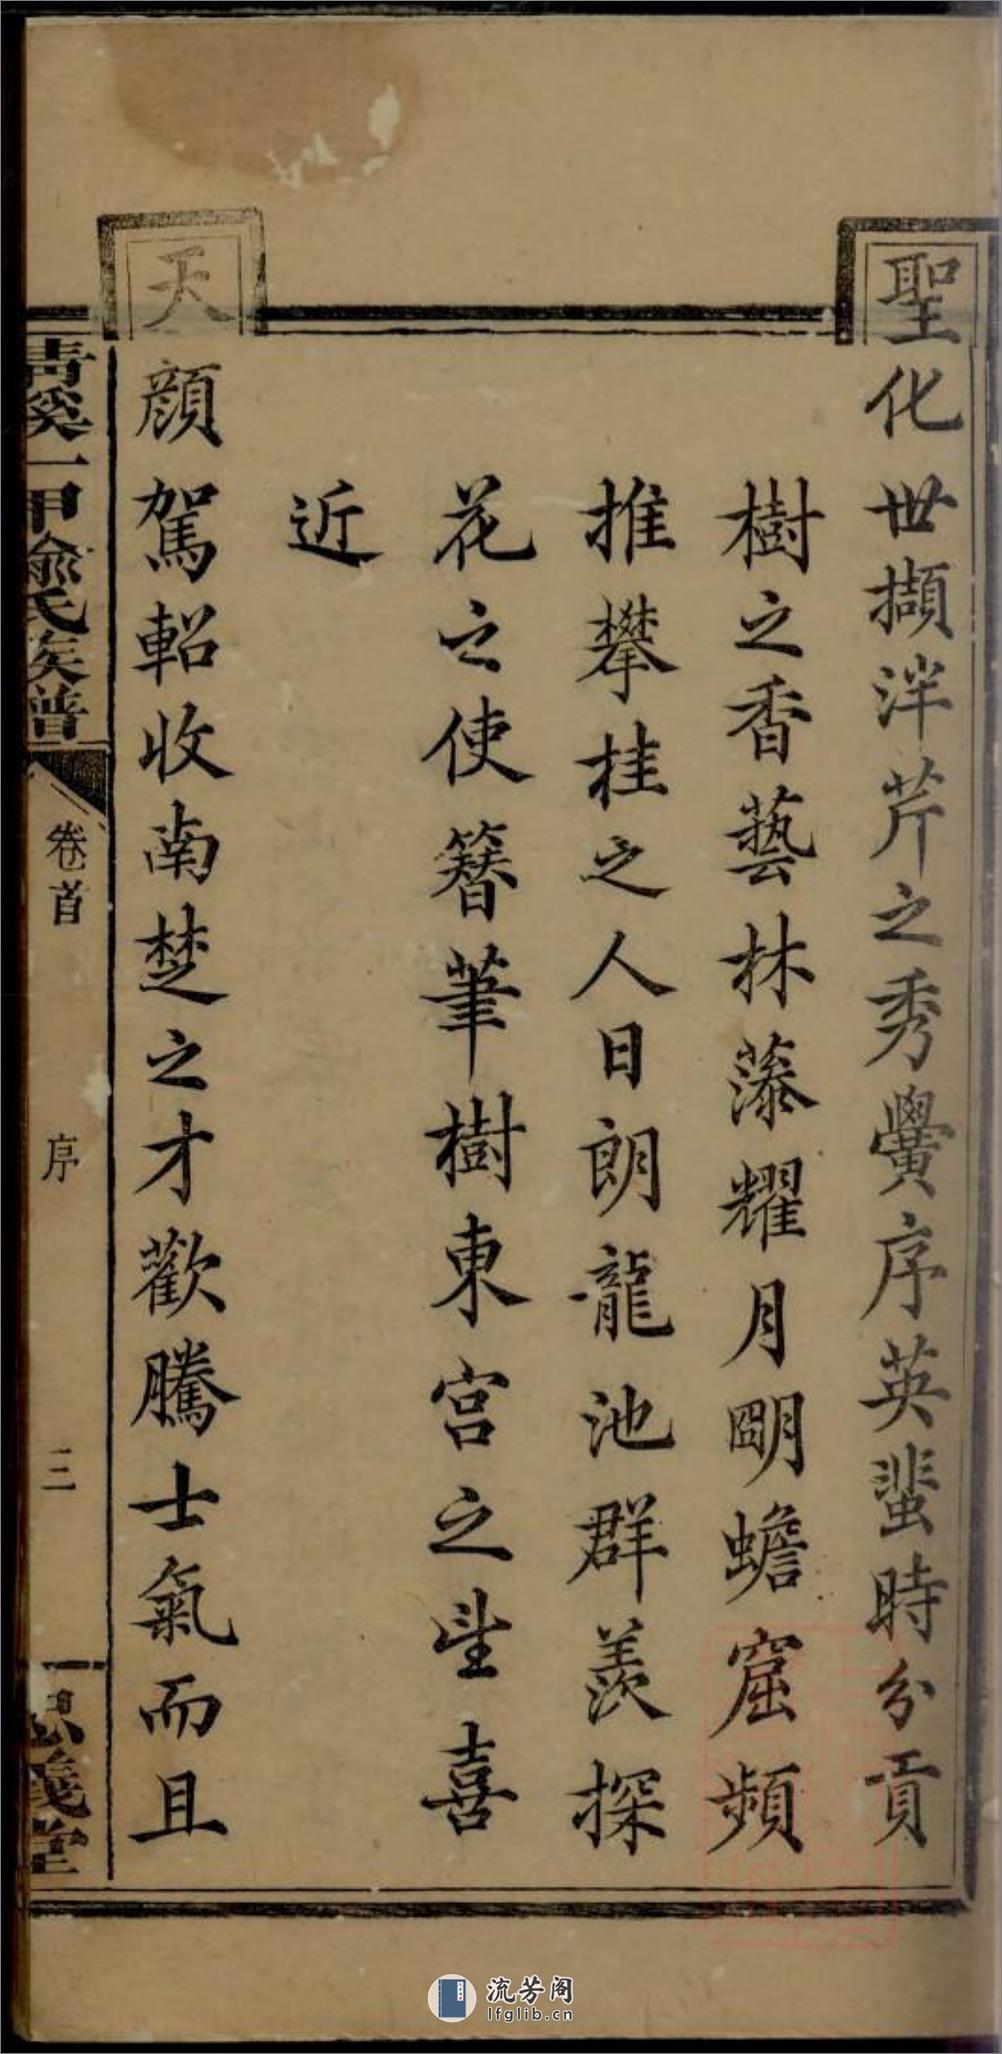 聖化世擷泮芹之秀黌序英蜚時分貢
樹之香藝林藻耀月朙蟾窟頻
推攀桂之人日朗龍池群羨探
花之使簪筆樹東宮之望喜
近
天顔駕軺收南楚之才歡騰士氣而且
青溪一甲俞氏族譜
卷首
序
三
義堂
流芳阁
lfglib.cn